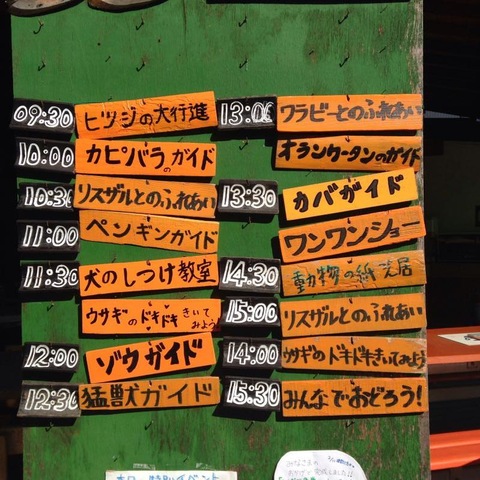 09:30 ヒツジの大行進
10:00 カピバラのガイド
10:30 リスザルとのふれあい
11:00 ペンギンガイド
11:30 犬のしつけ教室
ウサギのドキドキきいてみよう
12:00 ゾウガイド
12:30 猛獣ガイド
13:00 ワラビーとのふれあい
オランウータンのガイド
13:30 カバガイド
ワンワンショー
14:30 動物の紙芝居
15:00 リスザルとのふれあい
14:00 ウサギのドキドキきいてみよう
15:30 みんなでおどろう!
本日の特別イベント
みなさまの